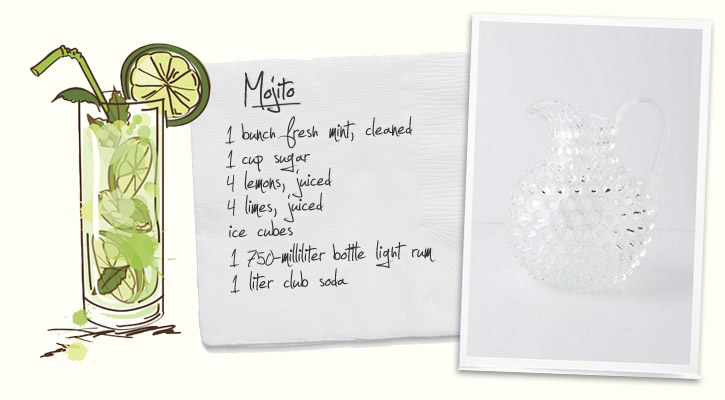 Mojito
1 bunch fresh mint, cleaned
1 cup sugar
4 lemons, juiced
4 limes, juiced
ice cubes
1 750-milliliter bottle light rum
1 liter club soda